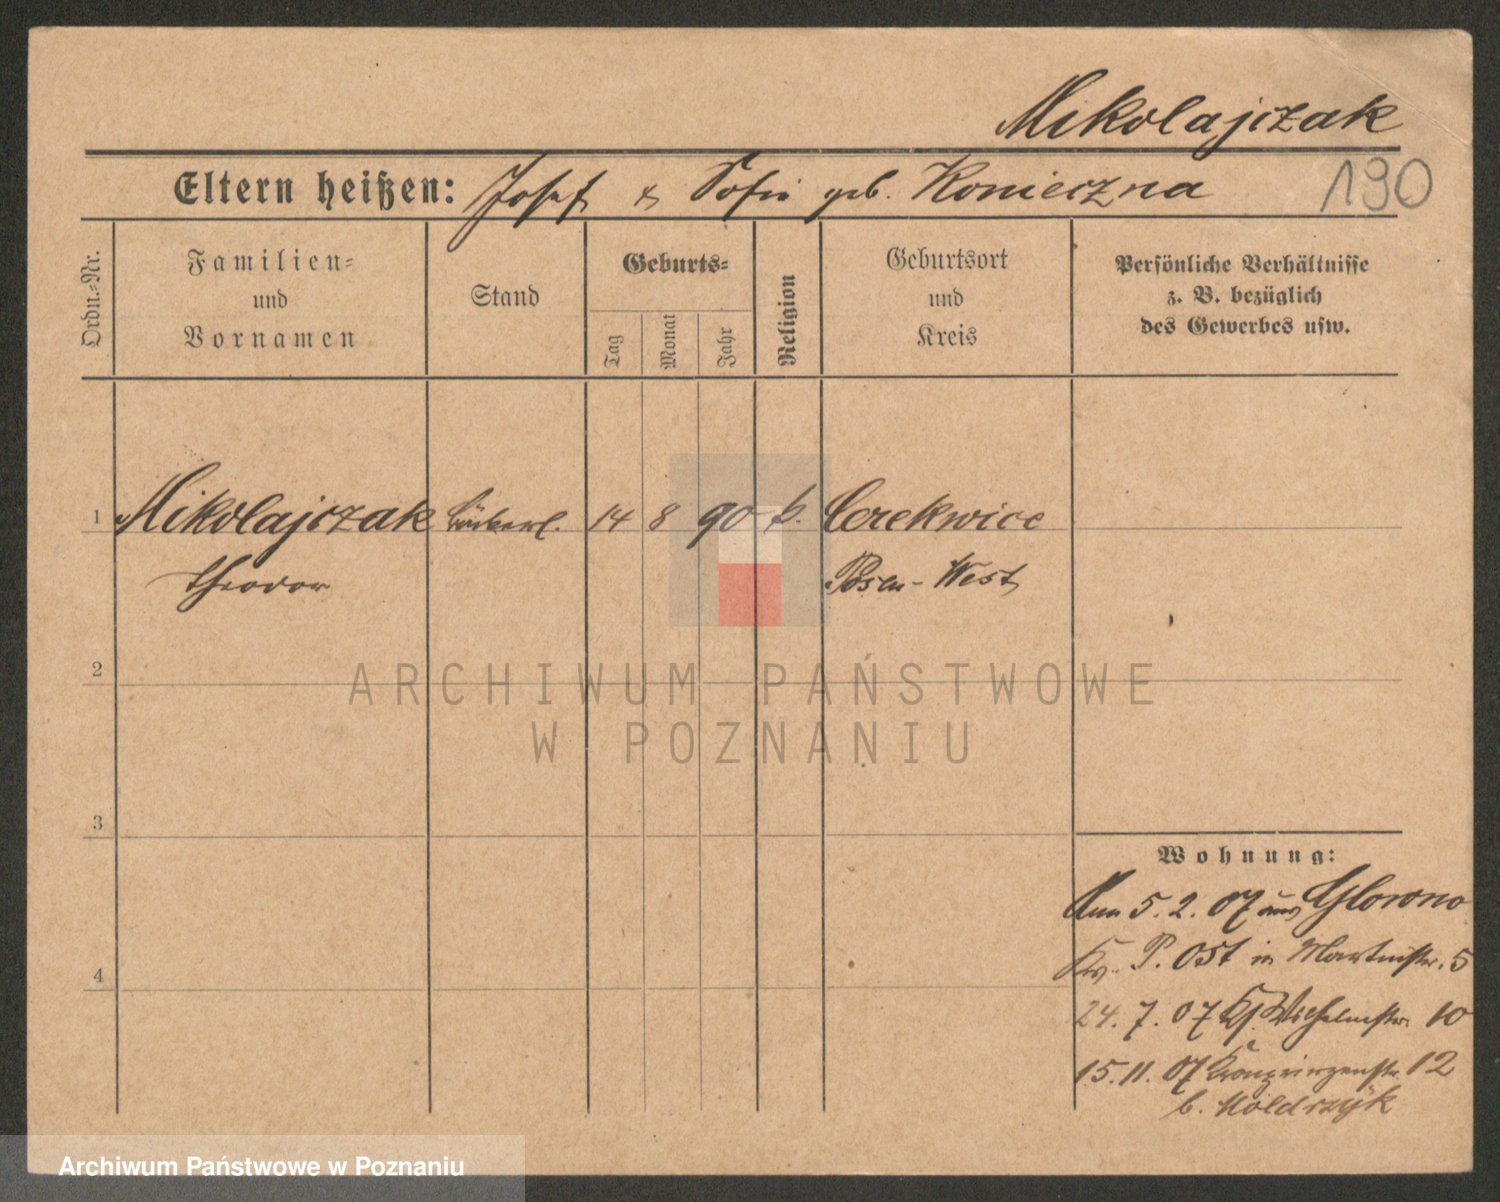 Mikolajczak
Eltern heißen: Josef & Sofie geb. Konieczna
190
Ordn.-Nr.
Familien-
und
Vornamen
Stand
Geburts-
Tag
Monat
Jahr
Religion
Geburtsort
und
Kreis
Persönliche Verhältnisse
z. B. bezüglich
des Gewerbes usw.
1 Mikolajczak Bäckerl. 14 8 90 k. Cerekwice
Theodor Posen-West
2
ARCHIWUM PAŃSTWOWE
W POZNANIU
3
Wohnung:
5. 2. 07 aus Glowno
P. Ost in Martinstr. 5
4
24. 7. 07 Kl. Wilhelmstr. 10
15. 11. 07 Kronprinzenstr. 12
b. Moldrzyk
Archiwum Państwowe w Poznaniu